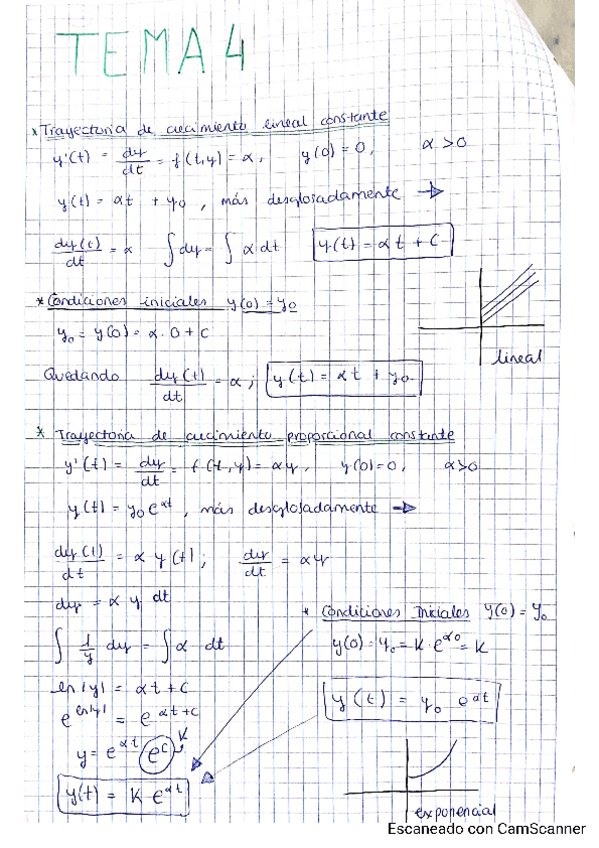 TEMA 4
* Trayectoria de crecimiento lineal constante
y'(t) = dy/dt = f(t,y) = α, y(0) = 0, α > 0
y(t) = αt + y₀, más desglosadamente →
dy(t)/dt = α ∫dy = ∫α dt y(t) = αt + C
* Condiciones iniciales y(0) = y₀
y₀ = y(0) = α · 0 + C
lineal
Quedando dy(t)/dt = α; y(t) = αt + y₀
* Trayectoria de crecimiento proporcional constante
y'(t) = dy/dt = f(t,y) = αy, y(0) = 0, α>0
y(t) = y₀ e^αt, más desglosadamente →
dy(t)/dt = α y(t); dy/dt = αy
dy = α y dt
∫ 1/y dy = ∫ α dt
ln|y| = αt + C
e^ln|y| = e^αt+C
y = e^αt e^C K
y(t) = K · e^αt
* Condiciones Iniciales y(0) = y₀
y(0) = y₀ = K · e^α0 = K
y(t) = y₀ e^αt
exponencial
Escaneado con CamScanner